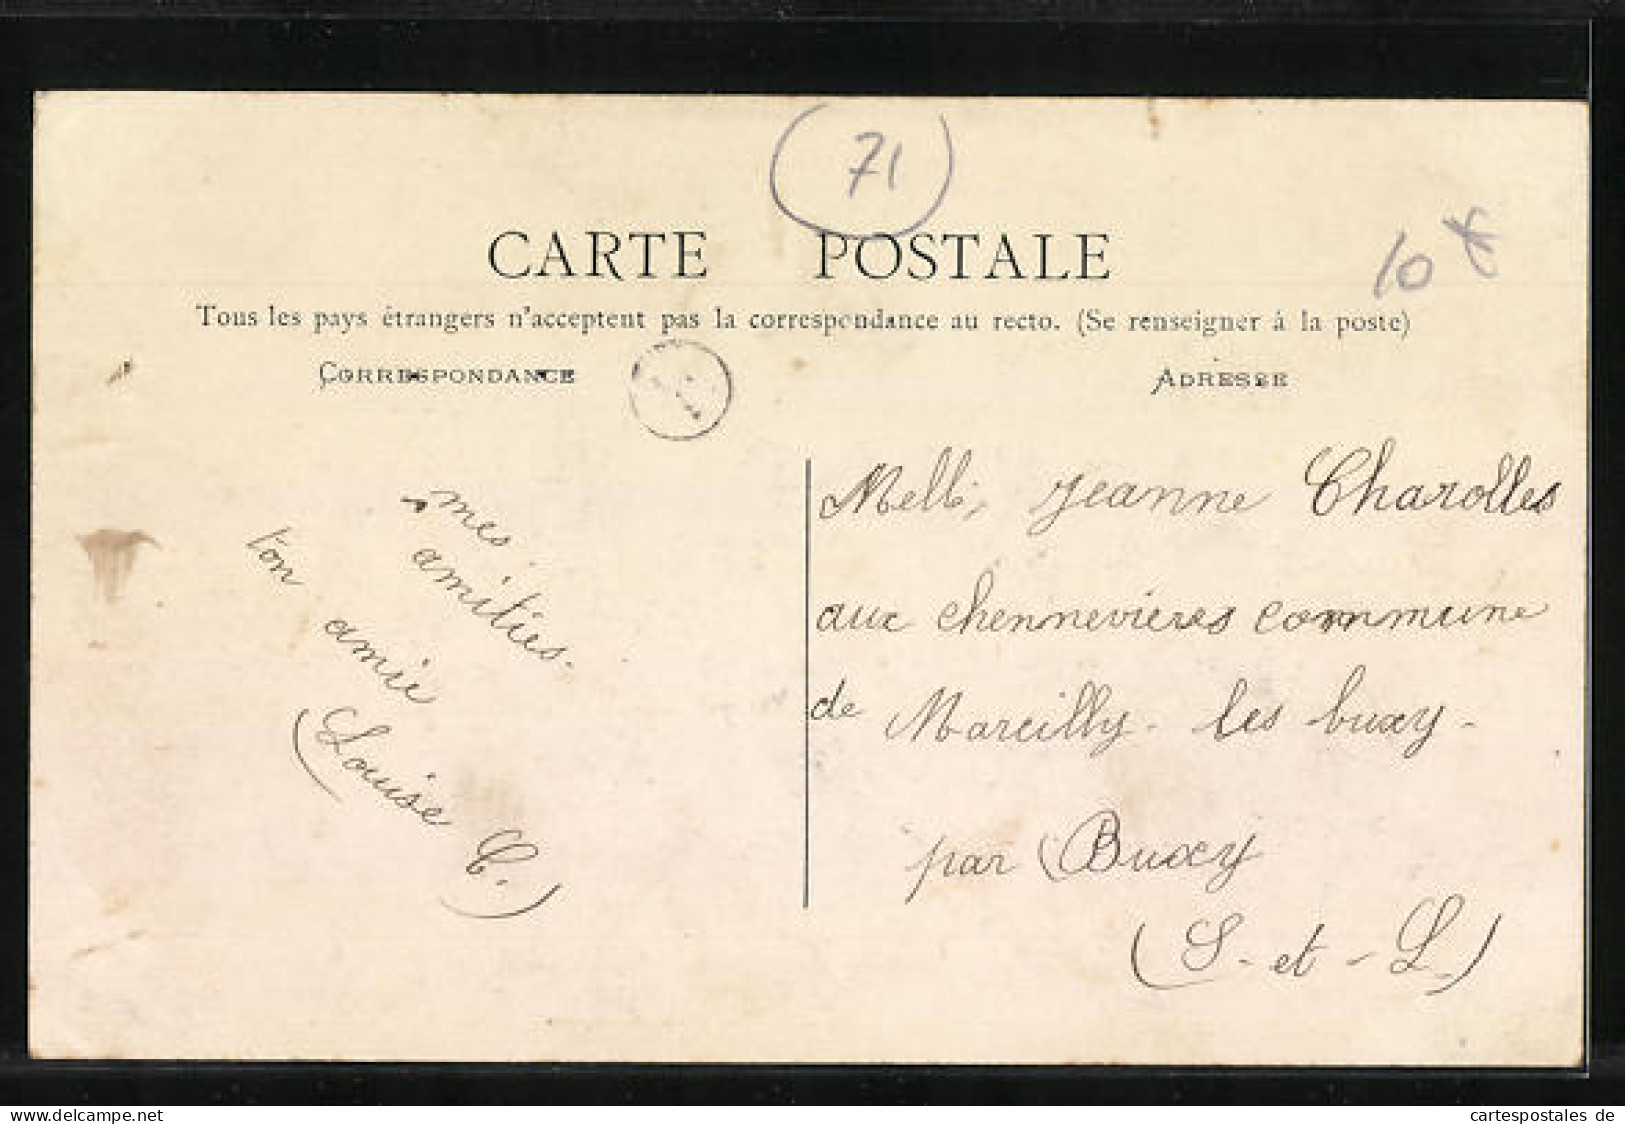 71
10
CARTE POSTALE
Tous les pays étrangers n'acceptent pas la correspondance au recto. (Se renseigner à la poste)
CORRESPONDANCE
ADRESSE
mes
amitiés.
ton amie
(Louise C.)
Melle, Jeanne Charolles
aux chennevières commune
de Marcilly-les buxy-
par Buxy
(S-et-L.)
cartespostales de